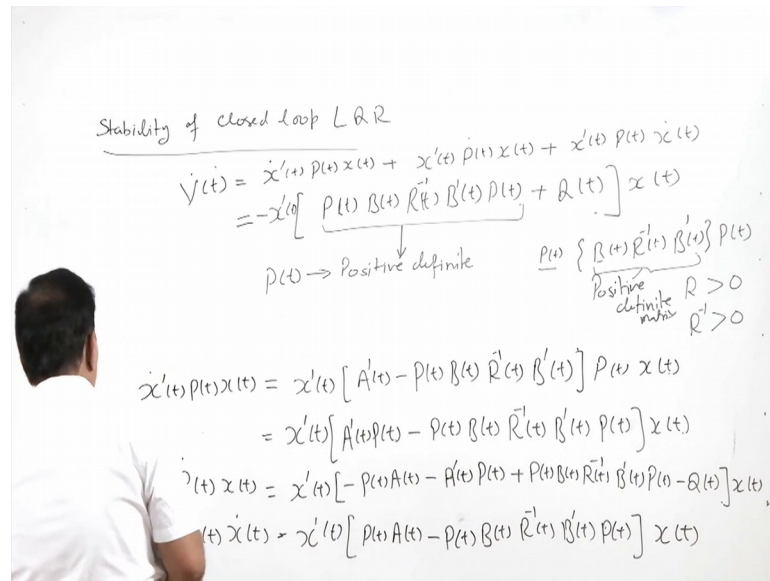 Stability of closed loop LQR
V̇(t) = ẋ'(t) P(t) x(t) + x'(t) Ṗ(t) x(t) + x'(t) P(t) ẋ(t)
= -x'(t) [ P(t) B(t) R⁻¹(t) B'(t) P(t) + Q(t) ] x(t)
P(t) → Positive definite
P(t) { B(t) R⁻¹(t) B'(t) } P(t)
Positive definite matrix
R > 0
R⁻¹ > 0
ẋ'(t) P(t) x(t) = x'(t) [ A'(t) - P(t) B(t) R⁻¹(t) B'(t) ] P(t) x(t)
= x'(t) [ A'(t) P(t) - P(t) B(t) R⁻¹(t) B'(t) P(t) ] x(t)
(t) x(t) = x'(t) [ - P(t) A(t) - A'(t) P(t) + P(t) B(t) R⁻¹(t) B'(t) P(t) - Q(t) ] x(t)
(t) ẋ(t) = x'(t) [ P(t) A(t) - P(t) B(t) R⁻¹(t) B'(t) P(t) ] x(t)